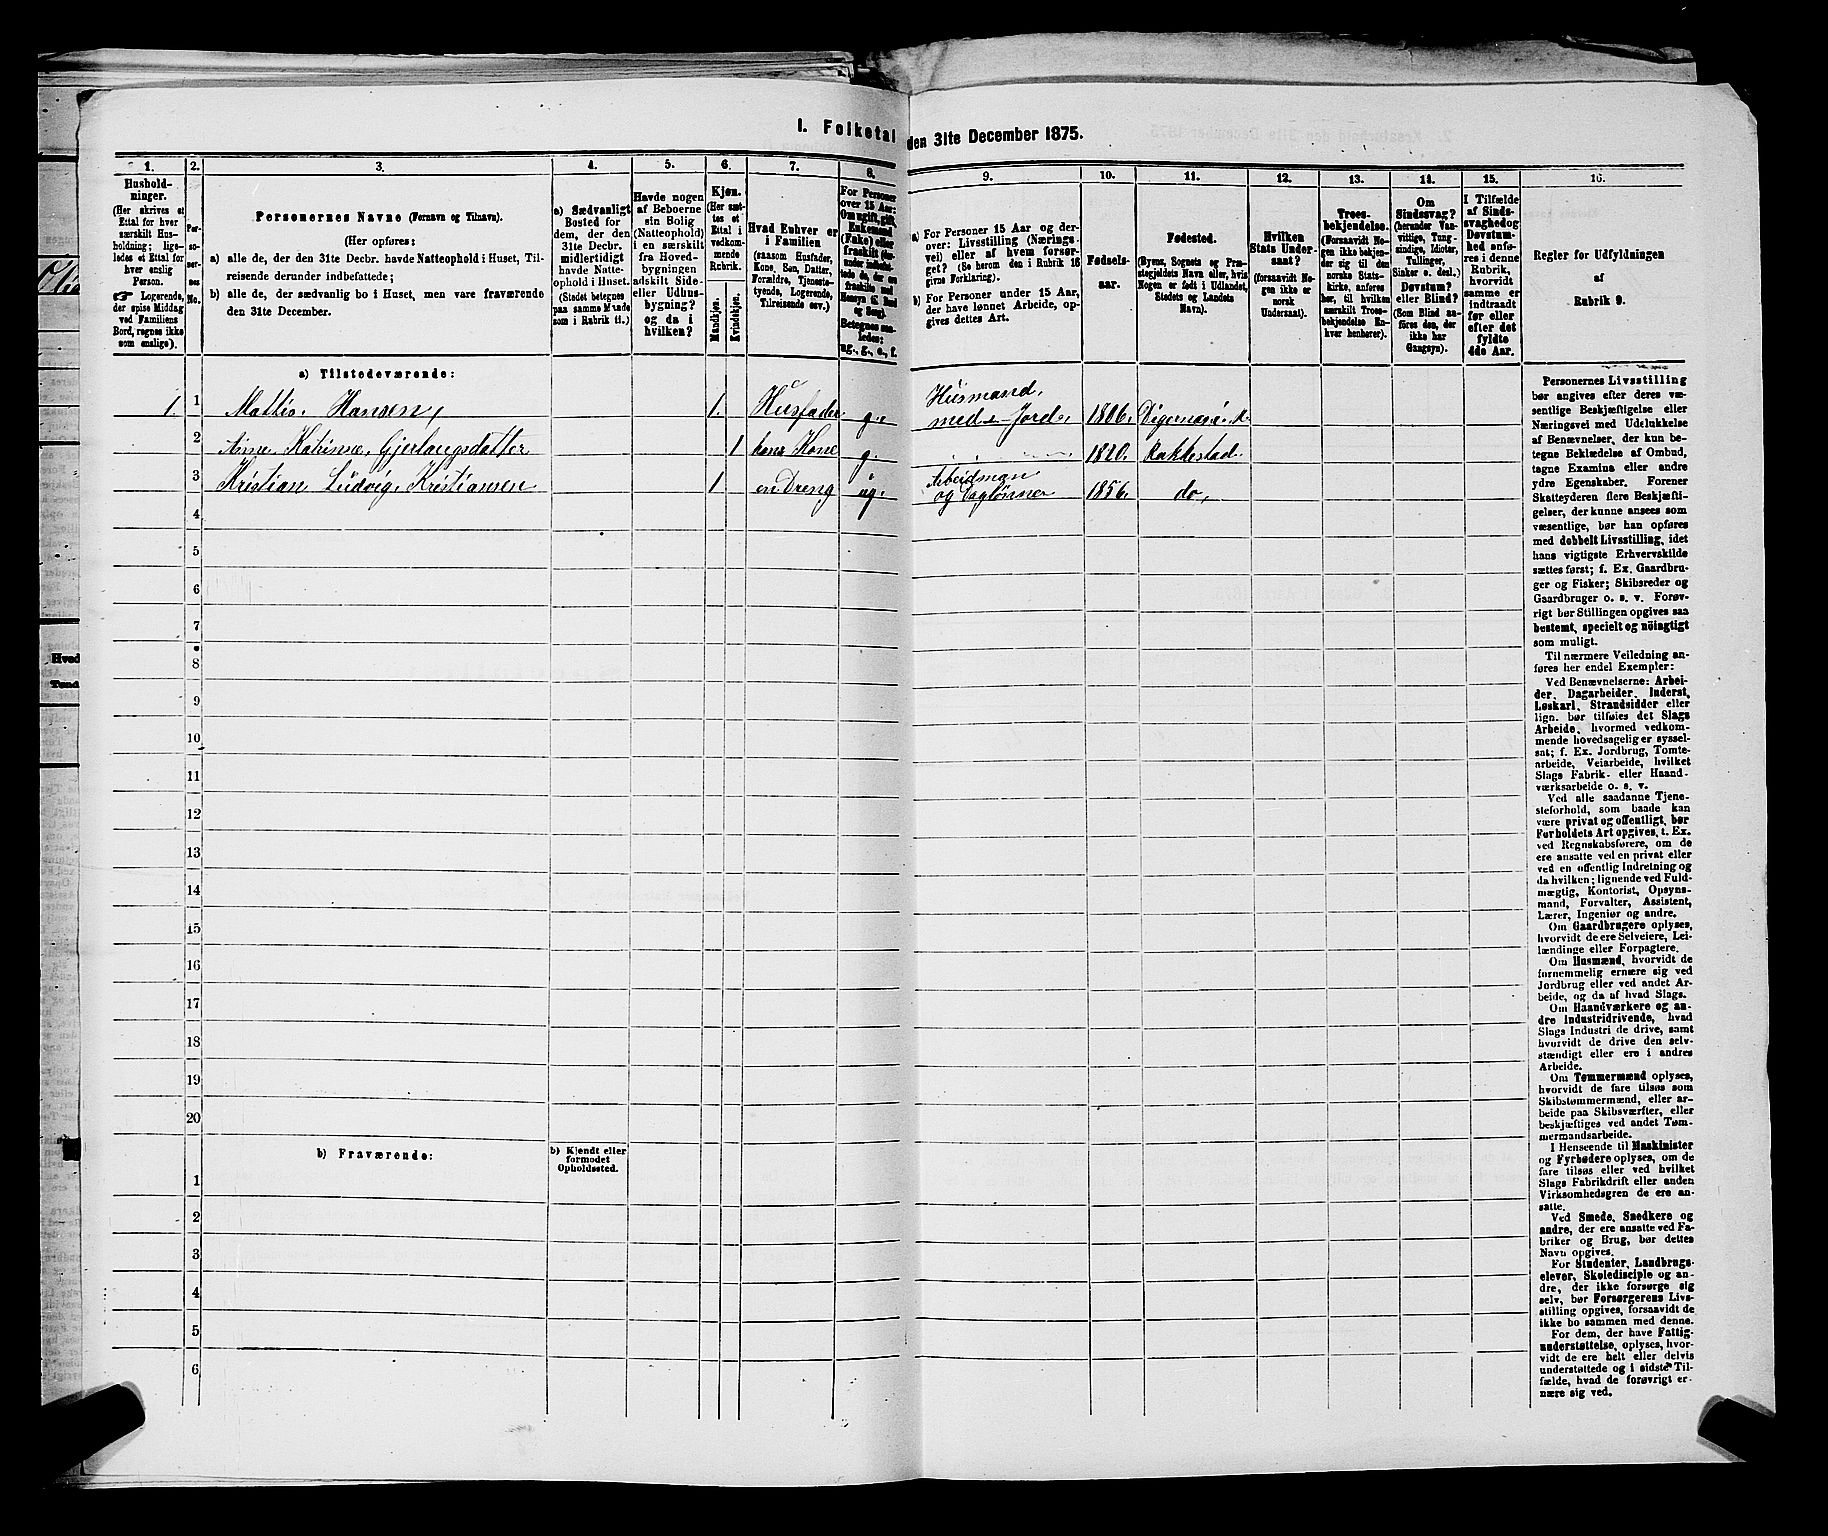 I. Folketal den 31te December 1875.
1. 2. 3. 4. 5. 6. 7. 8. 9. 10. 11. 12. 13. 14. 15. 16.
Hushold-
ninger.
(Her skrives et
Ettal for hver
særskilt Hus-
holdning; lige-
ledes et Ettal for
hver enslig
Person.
☞ Logerende,
der spise Middag
ved Familiens
Bord, regnes ikke
som enslige).
Per-
so-
ner-
nes
No.
Personernes Navne (Fornavn og Tilnavn).
(Her opføres:
a) alle de, der den 31te Decbr. havde Natteophold i Huset, Til-
reisende derunder indbefattede;
b) alle de, der sædvanlig bo i Huset, men vare fraværende
den 31te December.
a) Sædvanligt
Bosted for
dem, der den
31te Decbr.
midlertidigt
havde Natte-
ophold i Huset.
(Stedet betegnes
paa samme Maade
som i Rubrik 11.)
Havde nogen
af Beboerne
sin Bolig
(Natteophold)
i en særskilt
fra Hoved-
bygningen
adskilt Side-
eller Udhus-
bygning?
og da i
hvilken?
Kjøn.
(Her sæt-
tes et
Ettal i
vedkom-
mende
Rubrik.
Mandkjøn.
Kvindekjøn.
Hvad Enhver er
i Familien
(saasom Husfader,
Kone, Søn, Datter,
Forældre, Tjeneste-
tyende, Logerende,
Tilreisende osv.)
For Personer
over 15 Aar:
Om ugift, gift,
Enkemand
(Enke) eller
fraskilt
Betegnes saa-
ledes:
ug., g., e., f.
a) For Personer 15 Aar og der-
over: Livsstilling (Nærings-
vei) eller af hvem forsør-
get? (Se herom den i Rubrik 16
givne Forklaring).
b) For Personer under 15 Aar,
der have lønnet Arbeide, op-
gives dettes Art.
Fødsels-
aar.
Fødested.
(Byens, Sognets og Præ-
stegjeldets Navn eller, hvis
Nogen er født i Udlandet,
Stedets og Landets
Navn).
Hvilken
Stats Under-
saat?
(forsaavidt No-
gen ikke er
norsk
Undersaat).
Troes-
bekjendelse.
(Forsaavidt No-
gen ikke bekjen-
der sig til den
norske Stats-
kirke, anføres
her, til hvilken
særskilt Troes-
bekjendelse En-
hver henhører).
Om
Sindssvag?
(herunder Van-
vittige, Tung-
sindige, Idioter,
Tullinger,
Sinker o. desl.)
Døvstum?
eller Blind?
(Som Blind an-
føres den, der
ikke har
Gangsyn).
I Tilfælde
af Sinds-
svaghed og
Døvstum-
hed anfø-
res i denne
Rubrik,
hvorvidt
samme er
indtraadt
før eller
efter det
fyldte
4de Aar.
Regler for Udfyldningen
af
Rubrik 9.
a) Tilstedeværende:
1. 1 Mattis Hansen, 1. Husfader g. Husmand med Jord 1806.
2 Anne Katrine Gjerlaugsdatter 1 hans Kone g. 1820. Rakkestad
3 Kristian Ludvig Kristiansen 1 en Dreng ug. Arbeidman og Daglønner 1856. do,
4
5
6
7
8
9
10
11
12
13
14
15
16
17
18
19
20
b) Fraværende:
b) Kjendt eller
formodet
Opholdssted.
1
2
3
4
5
6
Personernes Livsstilling
bør angives efter deres væ-
sentlige Beskjæftigelse eller
Næringsvei med Udelukkelse
af Benævnelser, der kun be-
tegne Beklædelse af Ombud,
tagne Examina eller andre
ydre Egenskaber. Forener
Skatteyderen flere Beskjæfti-
gelser, der kunne ansees som
væsentlige, bør han opføres
med dobbelt Livsstilling, idet
hans vigtigste Erhvervskilde
sættes først; f. Ex. Gaardbru-
ger og Fisker; Skibsreder og
Gaardbruger o. s. v. Forøv-
rigt bør Stillingen opgives saa
bestemt, specielt og nöiagtigt
som muligt.
Til nærmere Veiledning an-
føres her endel Exempler:
Ved Benævnelserne: Arbei-
der, Dagarbeider, Inderst,
Løskarl, Strandsidder eller
lign. bør tilføies det Slags
Arbeide, hvormed vedkom-
mende hovedsagelig er syssel-
sat; f. Ex. Jordbrug, Tomte-
arbeide, Veiarbeide, hvilket
Slags Fabrik- eller Haand-
værksarbeide o. s. v.
Ved alle saadanne Tjene-
steforhold, som baade kan
være privat og offentligt, bør
Forholdets Art opgives, t. Ex.
ved Regnskabsførere, om de
ere ansatte ved en privat eller
ved en offentlig Indretning og
da hvilken; lignende ved Fuld-
mægtig, Kontorist, Opsyns-
mand, Forvalter, Assistent,
Lærer, Ingeniør og andre.
Om Gaardbrugere oplyses,
hvorvidt de ere Selveiere, Lei-
lændinge eller Forpagtere.
Om Husmænd, hvorvidt de
fornemmelig ernære sig ved
Jordbrug eller ved andet Ar-
beide, og da af hvad Slags.
Om Haandværkere og an-
dre Industridrivende, hvad
Slags Industri de drive, samt
hvorvidt de drive den selv-
stændigt eller ere i andres
Arbeide.
Om Tømmermænd oplyses,
hvorvidt de fare tilsøs som
Skibstømmermænd, eller ar-
beide paa Skibsværfter, eller
beskjæftiges ved andet Tøm-
mermandsarbeide.
I Henseende til Maskinister
og Fyrbødere oplyses, om de
fare tilsøs eller ved hvilket
Slags Fabrikdrift eller anden
Virksomhedsgren de ere an-
satte.
Ved Smede, Snedkere og
andre, der ere ansatte ved Fa-
briker og Brug, bør dettes
Navn opgives.
For Studenter, Landbrugs-
elever, Skoledisciple og an-
dre, der ikke forsørge sig
selv, bør Forsørgerens Livs-
stilling opgives, forsaavidt de
ikke bo sammen med denne.
For dem, der have Fattig-
understøttelse, oplyses, hvor-
vidt de ere helt eller delvis
understøttede og i sidste Til-
fælde, hvad de forøvrigt er-
nære sig ved.